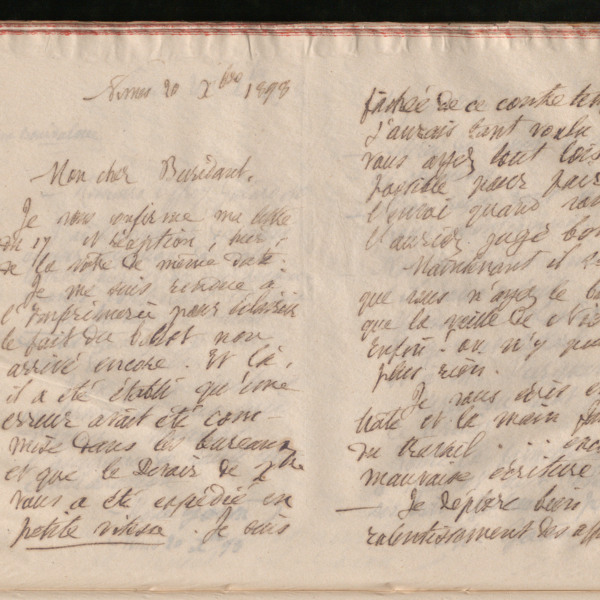 Nîmes 20 Xbre 1898
Mon cher Buridant,
Je vous confirme ma lettre
du 17 et réception, hier,
de la vôtre de même date.
Je me suis retourné à
l'Imprimerie pour éclaircir
le fait du ballot non
arrivé encore. Et là,
il a été établi qu'une
erreur avait été com-
mise dans les bureaux
et que le Devoir de Xbre
vous a été expédié en
petite vitesse. Je suis
fâchée de ce contre tem
J'aurais tant voulu
vous ayez tout lois
possible pour fair
l'envoi quand vou
l'auriez jugé bon
Maintenant il
que vous n'ayez le ba
que la veille de No
Enfin on n'y peu
plus rien.
Je vous écris en
hâte et la main
du travail . . .
mauvaise écriture
— Je déplore bien
ralentissement des aff